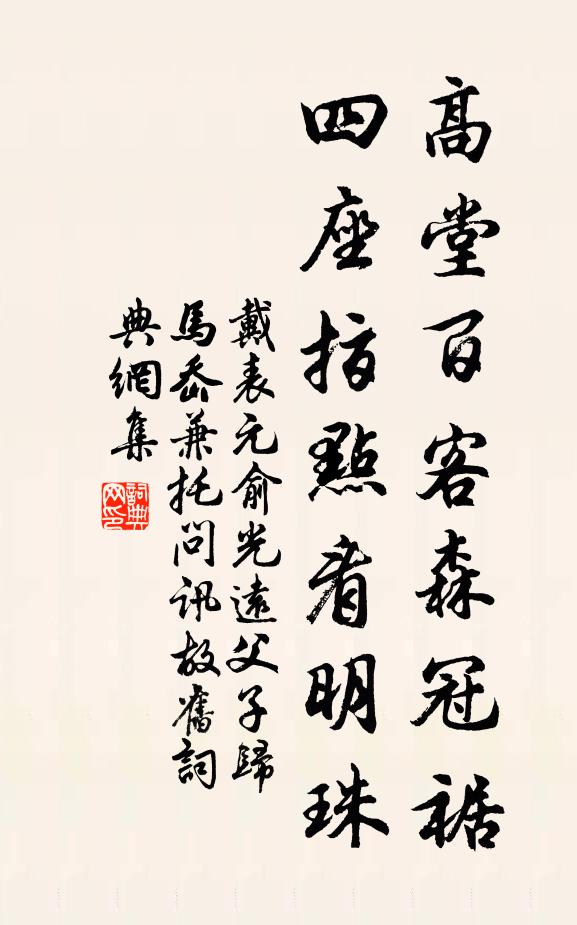 高堂百客森冠裾
四座指點看明珠
戴表元俞光遠父子歸
馬岙兼托問訊故舊詞
典網集
詞典網印